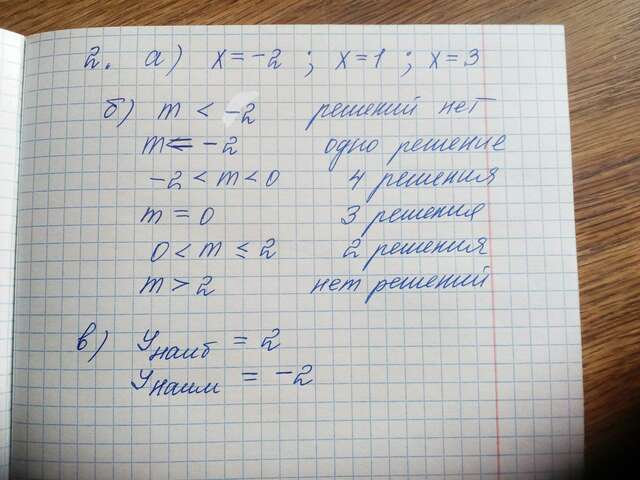 2. а) x = -2 ; x = 1 ; x = 3
б) m < -2 решений нет
m = -2 одно решение
-2 < m < 0 4 решения
m = 0 3 решения
0 < m ≤ 2 2 решения
m > 2 нет решений
в) Унаиб = 2
Унаим = -2